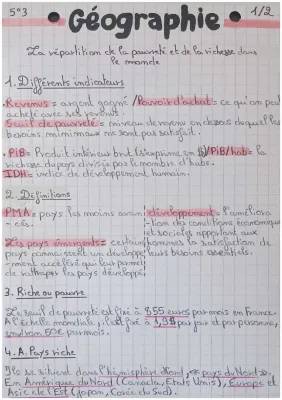 5°3
1/2
• Géographie •
La répartition de la pauvreté et de la richesse dans
le monde
1. Différents indicateurs
• Revenus = argent gagné / Pouvoir d'achat = ce qu'on peut
acheté avec ses revenus.
Seuil de pauvreté = niveau de revenu en dessous duquel les
besoins minimaux ne sont pas satisfait.
• PiB = Produit intérieur brut (s'exprime en $) / PiB/hab = la
richesse du pays divisée par le nombre d'habs.
IDH = indice de développement humain.
2. Définitions
PMA = pays les moins avan
- cés.
Les pays émergents = certains
pays connaissent un dévelope
- ment accéléré qui leur permet
de rattraper les pays développés
développement = l'améliora
- tion des conditions économiques
et sociales apportant aux
hommes la satisfaction de
leurs besoins essentiels.
3. Riche ou pauvre
Le seuil de pauvreté est fixé à 855 euros par mois en France.
A l'échelle mondiale, il est fixé à 1,9$ par jour et par personne,
environ 50€ par mois.
4. A. Pays riche
Ils se situent dans l'hémisphère Nord, « pays du Nord ».
En Amérique du Nord (Canada, États Unis), Europe et
Asie de l'Est (Japon, Corée du Sud).